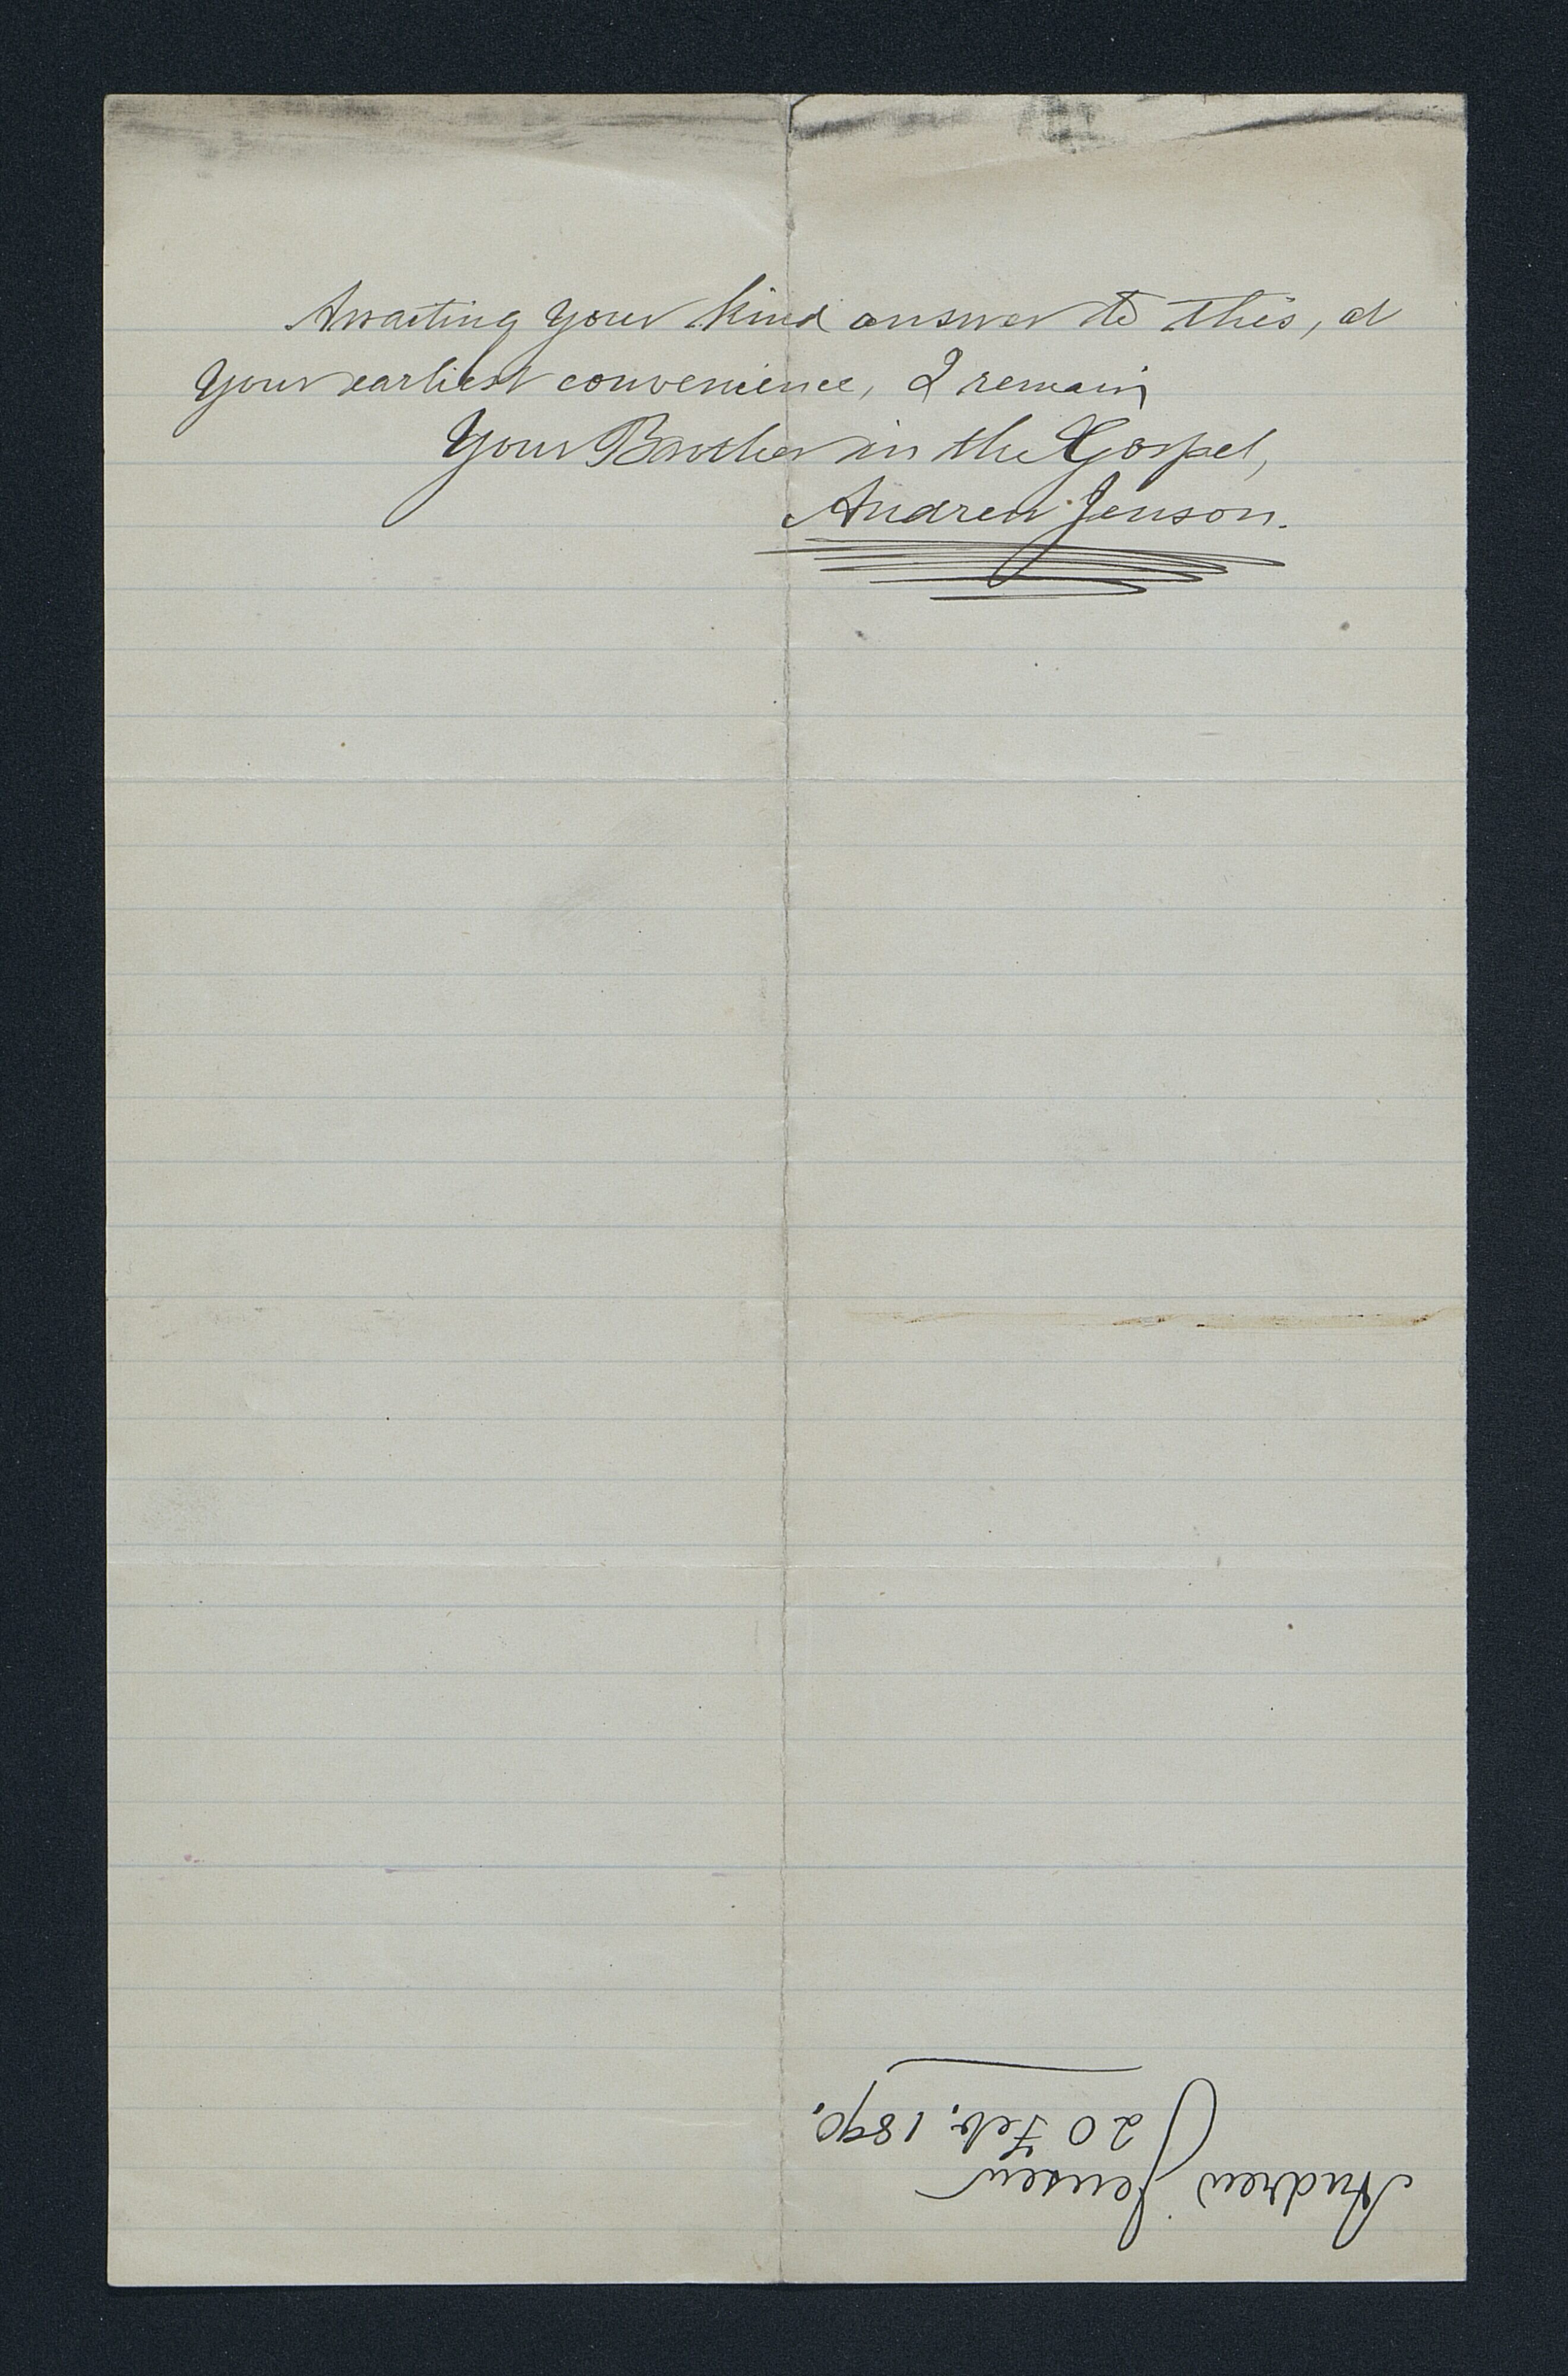 Awaiting your kind answer to this, at
your earliest convenience, I remain
Your Brother in the Gospel,
Andrew Jenson.
Andrew Jensen
20 Feb. 1890.